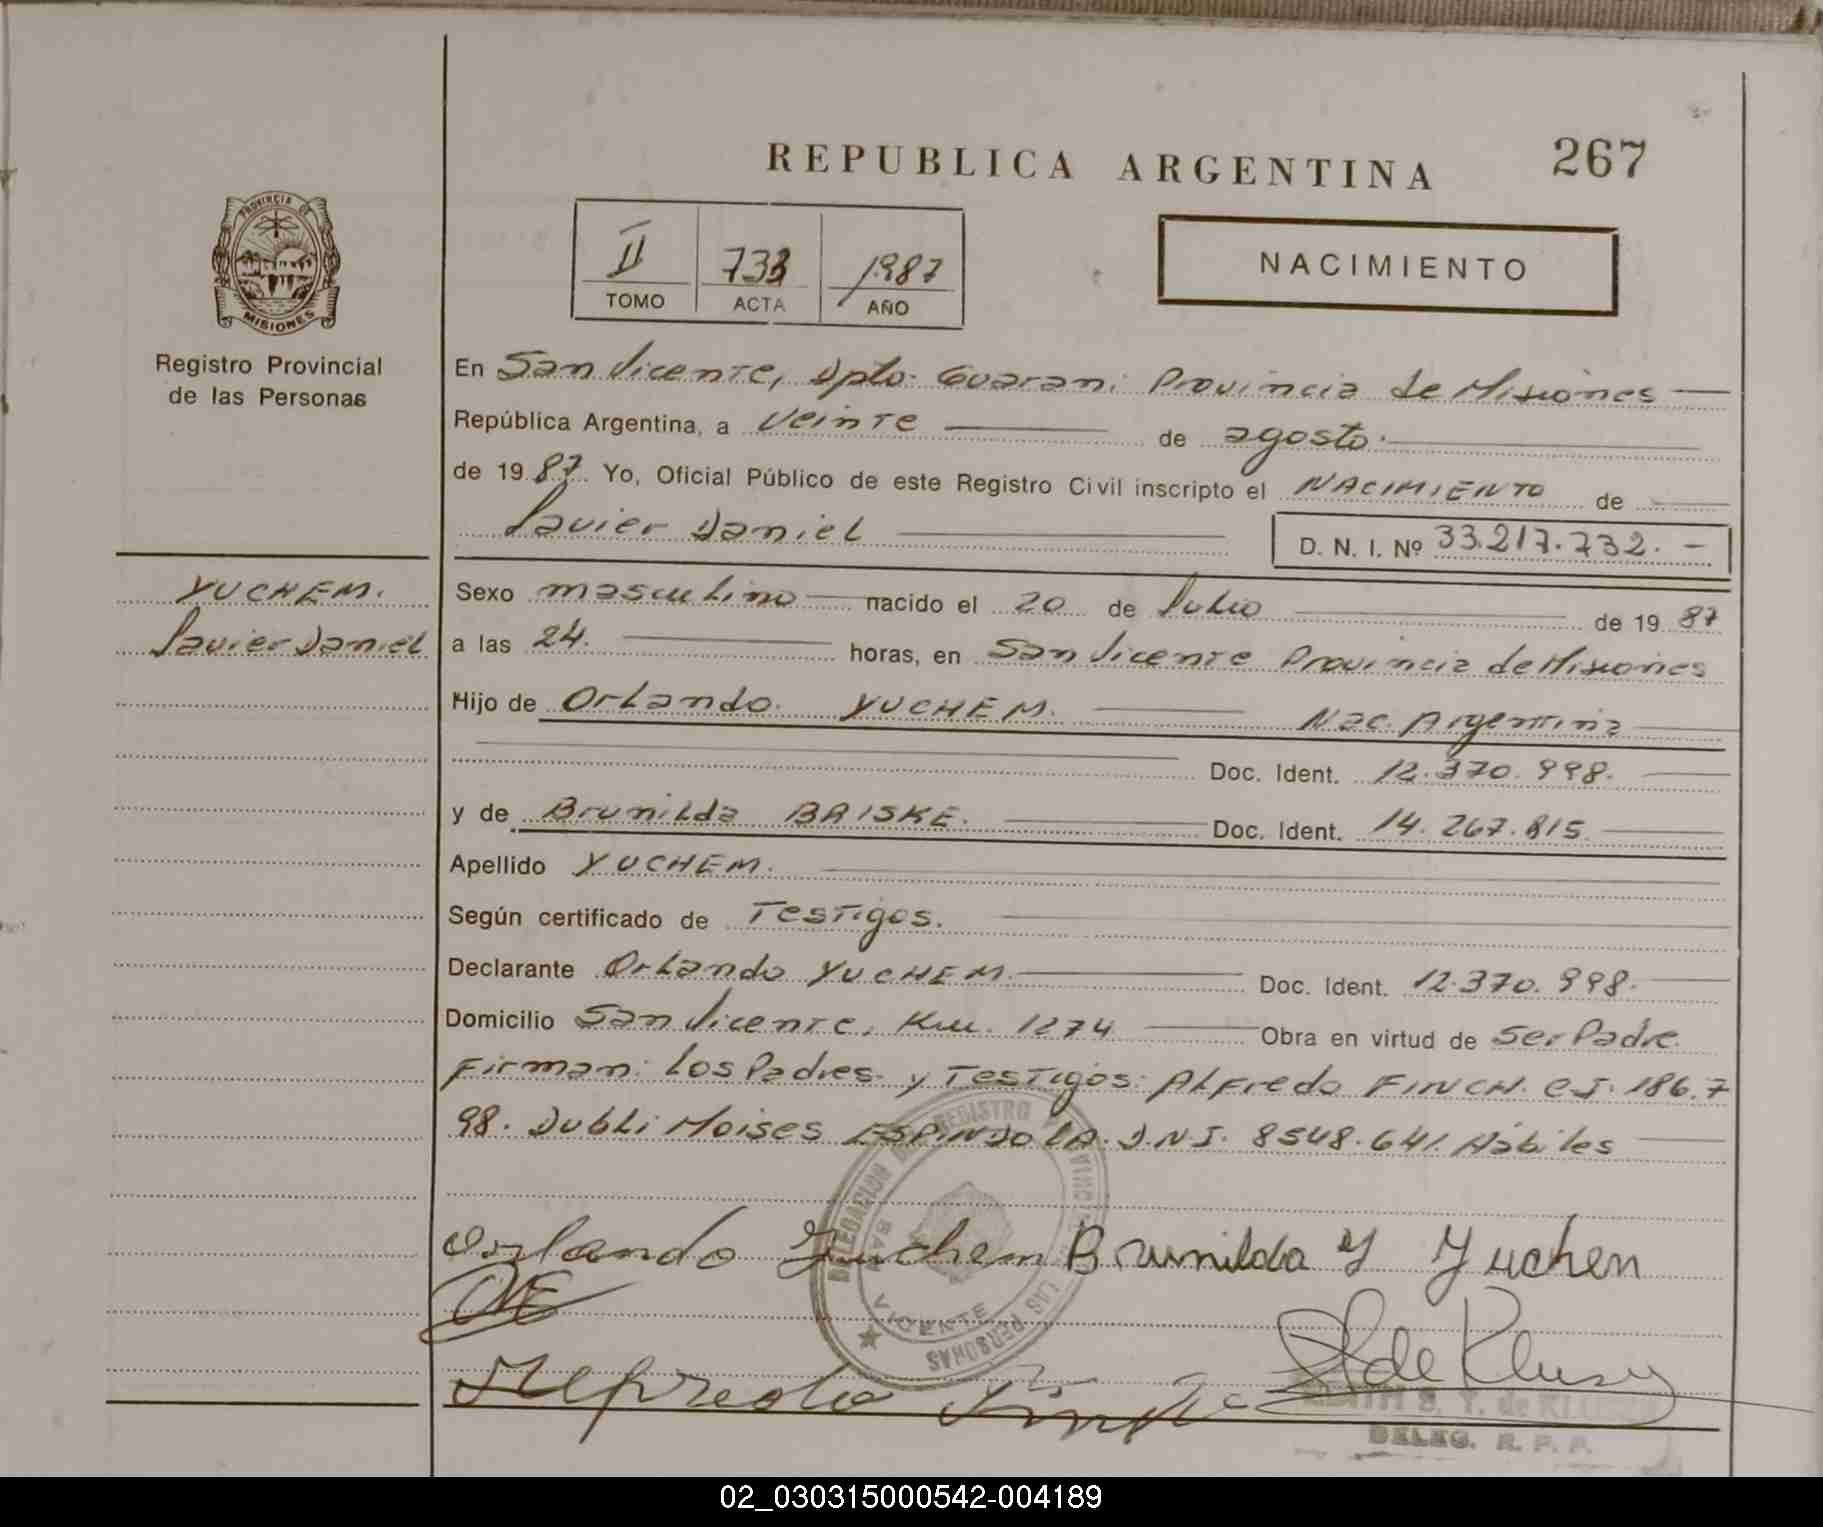 REPUBLICA ARGENTINA 267
PROVINCIA DE
MISIONES
Registro Provincial
de las Personas
II 733 1987
TOMO ACTA AÑO
NACIMIENTO
En San Vicente, Dpto. Guarani Provincia de Misiones
República Argentina, a veinte de agosto.
de 1987. Yo, Oficial Público de este Registro Civil inscripto el NACIMIENTO de
Javier Daniel D. N. I. Nº 33.217.732.-
YUCHEM.
Javier Daniel
Sexo masculino nacido el 20 de Julio de 1987
a las 24. horas, en San Vicente Provincia de Misiones
Hijo de Orlando YUCHEM. Nac. Argentina
Doc. Ident. 12.370.998.
y de Brunilda BRISKE. Doc. Ident. 14.267.815.
Apellido YUCHEM.
Según certificado de Testigos.
Declarante Orlando YUCHEM. Doc. Ident. 12.370.998.
Domicilio San Vicente, Km. 1274 Obra en virtud de ser Padre
Firman: los Padres y Testigos: Alfredo FINCH. CI. 186.7
98. Dubli Moises ESPINDOLA. D.N.I. 8548.641. Hábiles
DELEGACION REGISTRO LAS PERSONAS
Orlando Yuchem Brunilda Y Yuchen
Alfredo
S. T. de
DELEG. R. P. P.
02_030315000542-004189